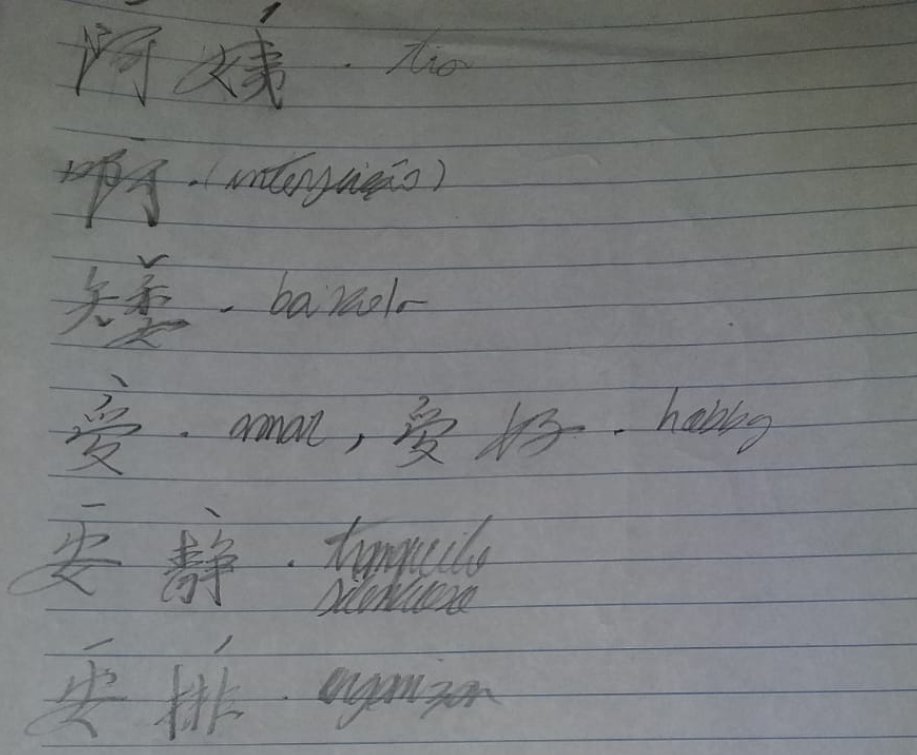 阿姨 · tia
啊 · (interjeição)
矮 · baixola
爱 · amar, 爱好 · hobby
安静 · tranquilo
silencioso
安排 · organizar